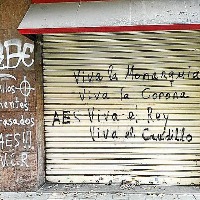 Viva la Monarquia
Viva la Corona
AES Viva el Rey
Viva el Caudillo
mentes
rasados
AES!!!
V.E.R